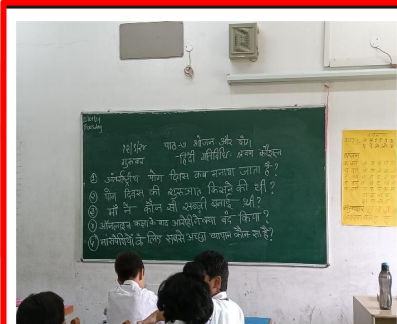 Thursday
पाठ-७ भोजन और योग
गुरूवार हिंदी गतिविधि- श्रवण कौशल
① अंतर्राष्ट्रीय योग दिवस कब मनाया जाता है?
② योग दिवस की शुरुआत किसने की थी?
③ माँ ने कौन सी सब्ज़ी बनाई थी?
④ ऑनलाइन कक्षा के बाद आरोही ने क्या बंद किया?
⑤ मांसपेशियों के लिए सबसे अच्छा व्यायाम कौन सा है?